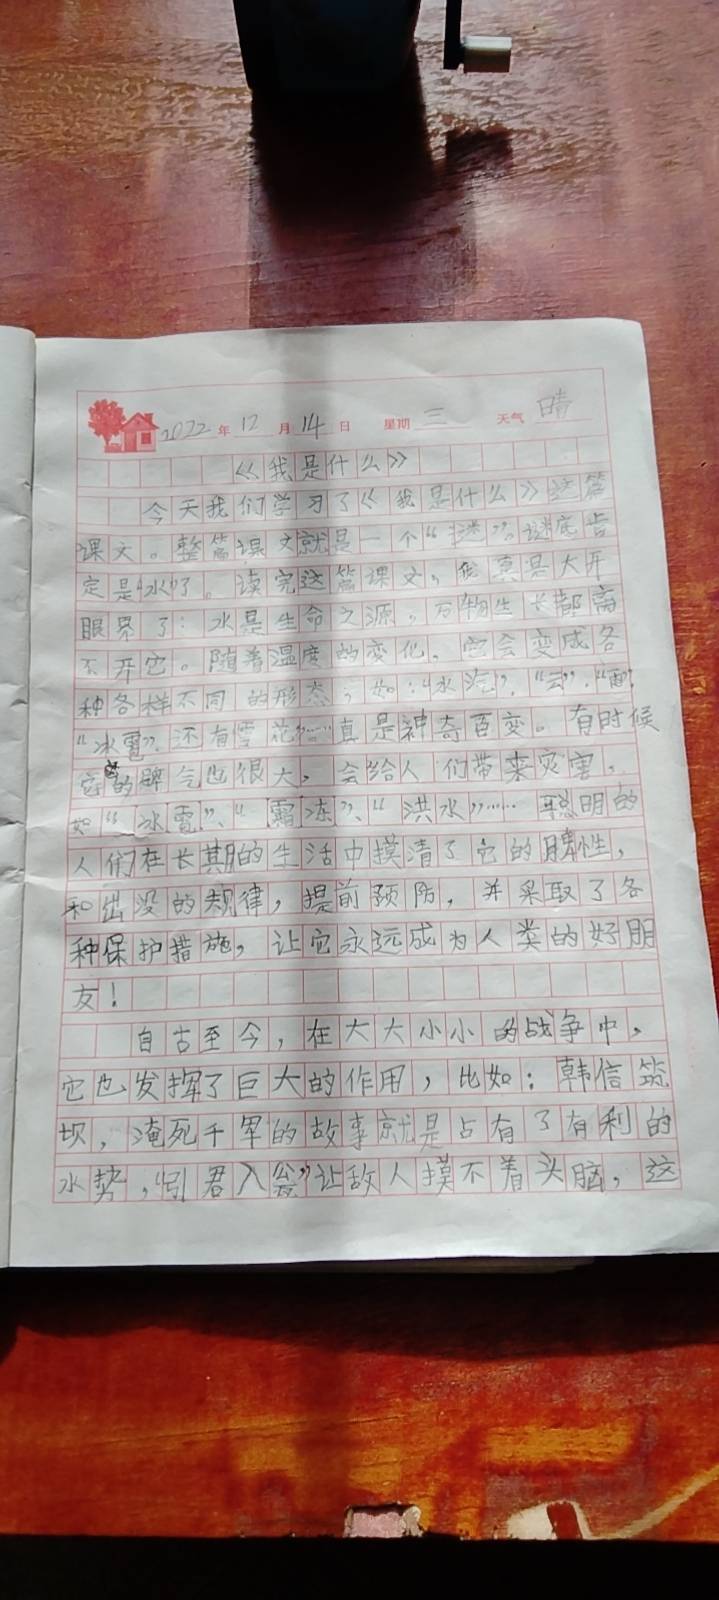 2022年12月14日 星期三 天气晴
《我是什么》
今天我们学习了《我是什么》这篇
课文。整篇课文就是一个“谜”。谜底肯
定是“水”了。读完这篇课文，我真是大开
眼界了：水是生命之源，万物生长都离
不开它。随着温度的变化，它会变成各
种各样不同的形态；如：“水汽”、“云”、“雨”、
“冰雹”、还有雪花……真是神奇百变。有时候
它的脾气也很大，会给人们带来灾害，
如“冰雹”、“霜冻”、“洪水”……聪明的
人们在长期的生活中摸清了它的脾性，
和出没的规律，提前预防，并采取了各
种保护措施，让它永远成为人类的好朋
友！
自古至今，在大大小小的战争中，
它也发挥了巨大的作用，比如：韩信筑
坝，淹死千军的故事就是占有了有利的
水势，“引君入瓮”让敌人摸不着头脑，这